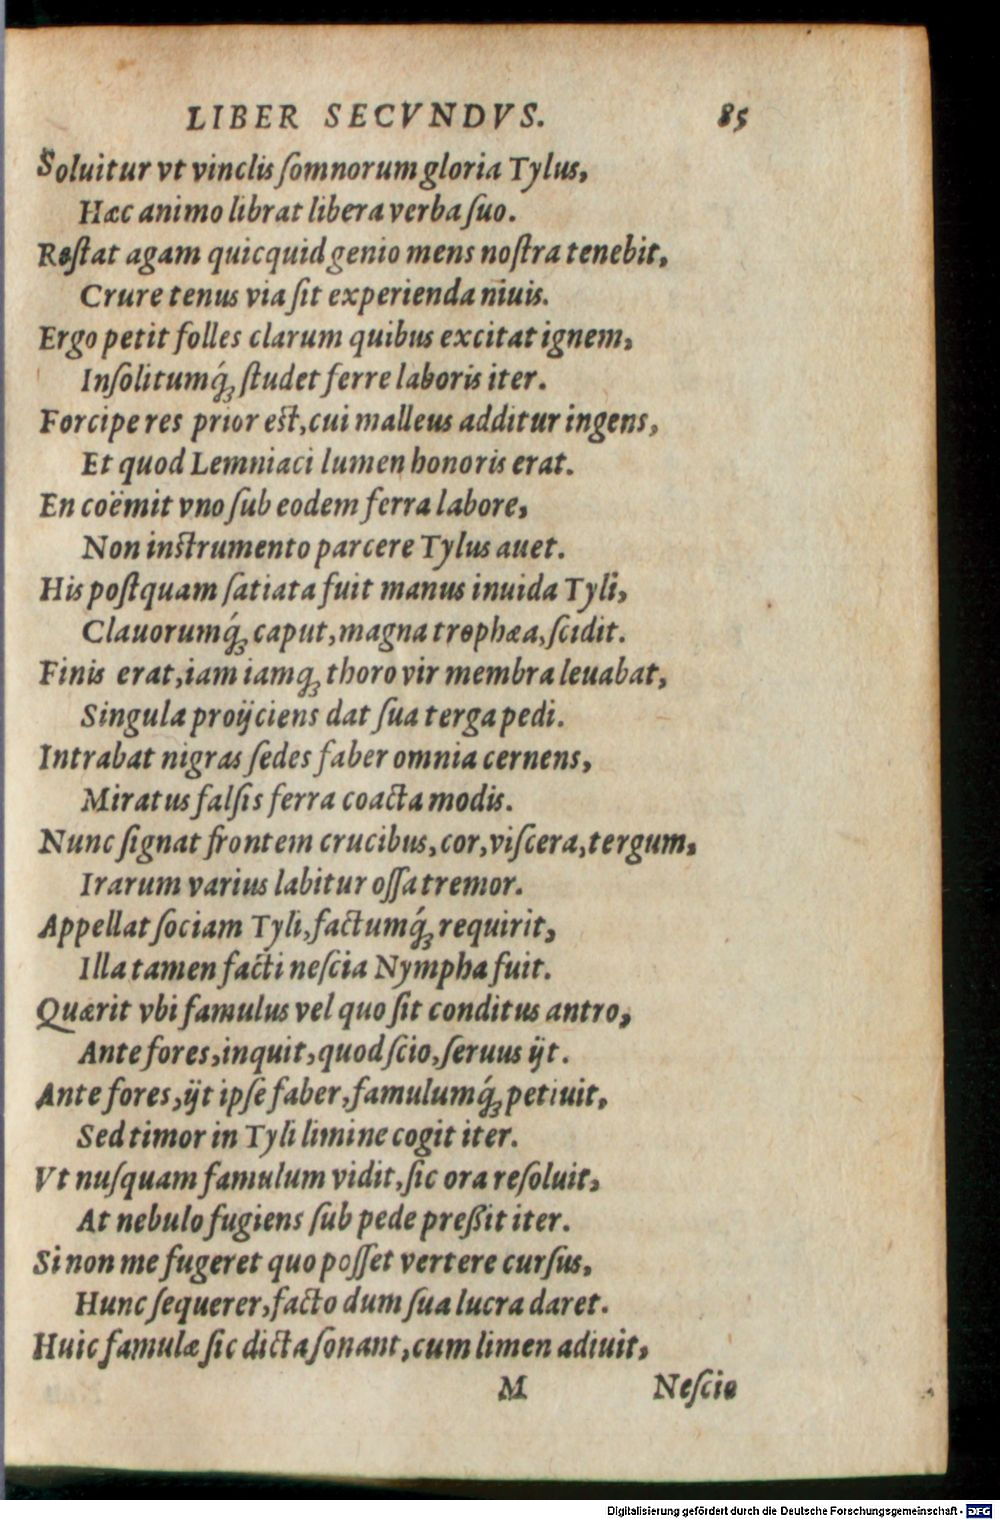 LIBER SECVNDVS. 85
Soluitur vt vinclis ſomnorum gloria Tylus,
Hæc animo librat libera verba ſuo.
Reſtat agam quicquid genio mens noſtra tenebit,
Crure tenus via ſit experienda niuis.
Ergo petit folles clarum quibus excitat ignem,
Inſolitumq́ꝫ ſtudet ferre laboris iter.
Forcipe res prior eſt, cui malleus additur ingens,
Et quod Lemniaci lumen honoris erat.
En coëmit vno ſub eodem ferra labore,
Non inſtrumento parcere Tylus auet.
His poſtquam ſatiata fuit manus inuida Tyli,
Clauorumq́ꝫ caput, magna trophæa, ſcidit.
Finis erat, iam iamqꝫ thoro vir membra leuabat,
Singula proijciens dat ſua terga pedi.
Intrabat nigras ſedes faber omnia cernens,
Miratus falſis ferra coacta modis.
Nunc ſignat frontem crucibus, cor, viſcera, tergum,
Irarum varius labitur oſſa tremor.
Appellat ſociam Tyli, factumq́ꝫ requirit,
Illa tamen facti neſcia Nympha fuit.
Quærit vbi famulus vel quo ſit conditus antro,
Ante fores, inquit, quod ſcio, ſeruus ijt.
Ante fores, ijt ipſe faber, famulumq́ꝫ petiuit,
Sed timor in Tyli limine cogit iter.
Vt nuſquam famulum vidit, ſic ora reſoluit,
At nebulo fugiens ſub pede preßit iter.
Si non me fugeret quo poſſet vertere curſus,
Hunc ſequerer, facto dum ſua lucra daret.
Huic famulæ ſic dicta ſonant, cum limen adiuit,
M Neſcio
Digitalisierung gefördert durch die Deutsche Forschungsgemeinschaft - DFG